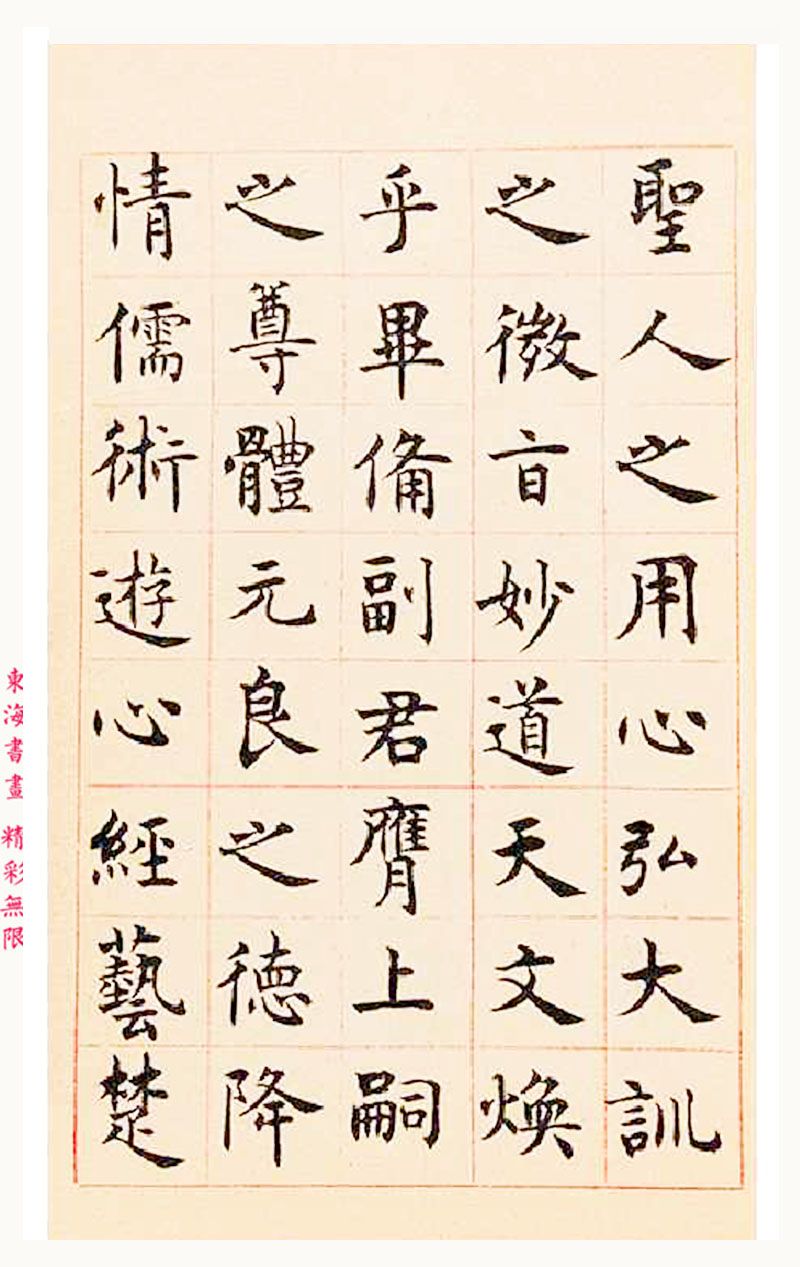 聖人之用心弘大訓
之微旨妙道天文煥
乎畢備副君膺上嗣
之尊體元良之德降
情儒術遊心經藝楚
東海書畫 精彩無限